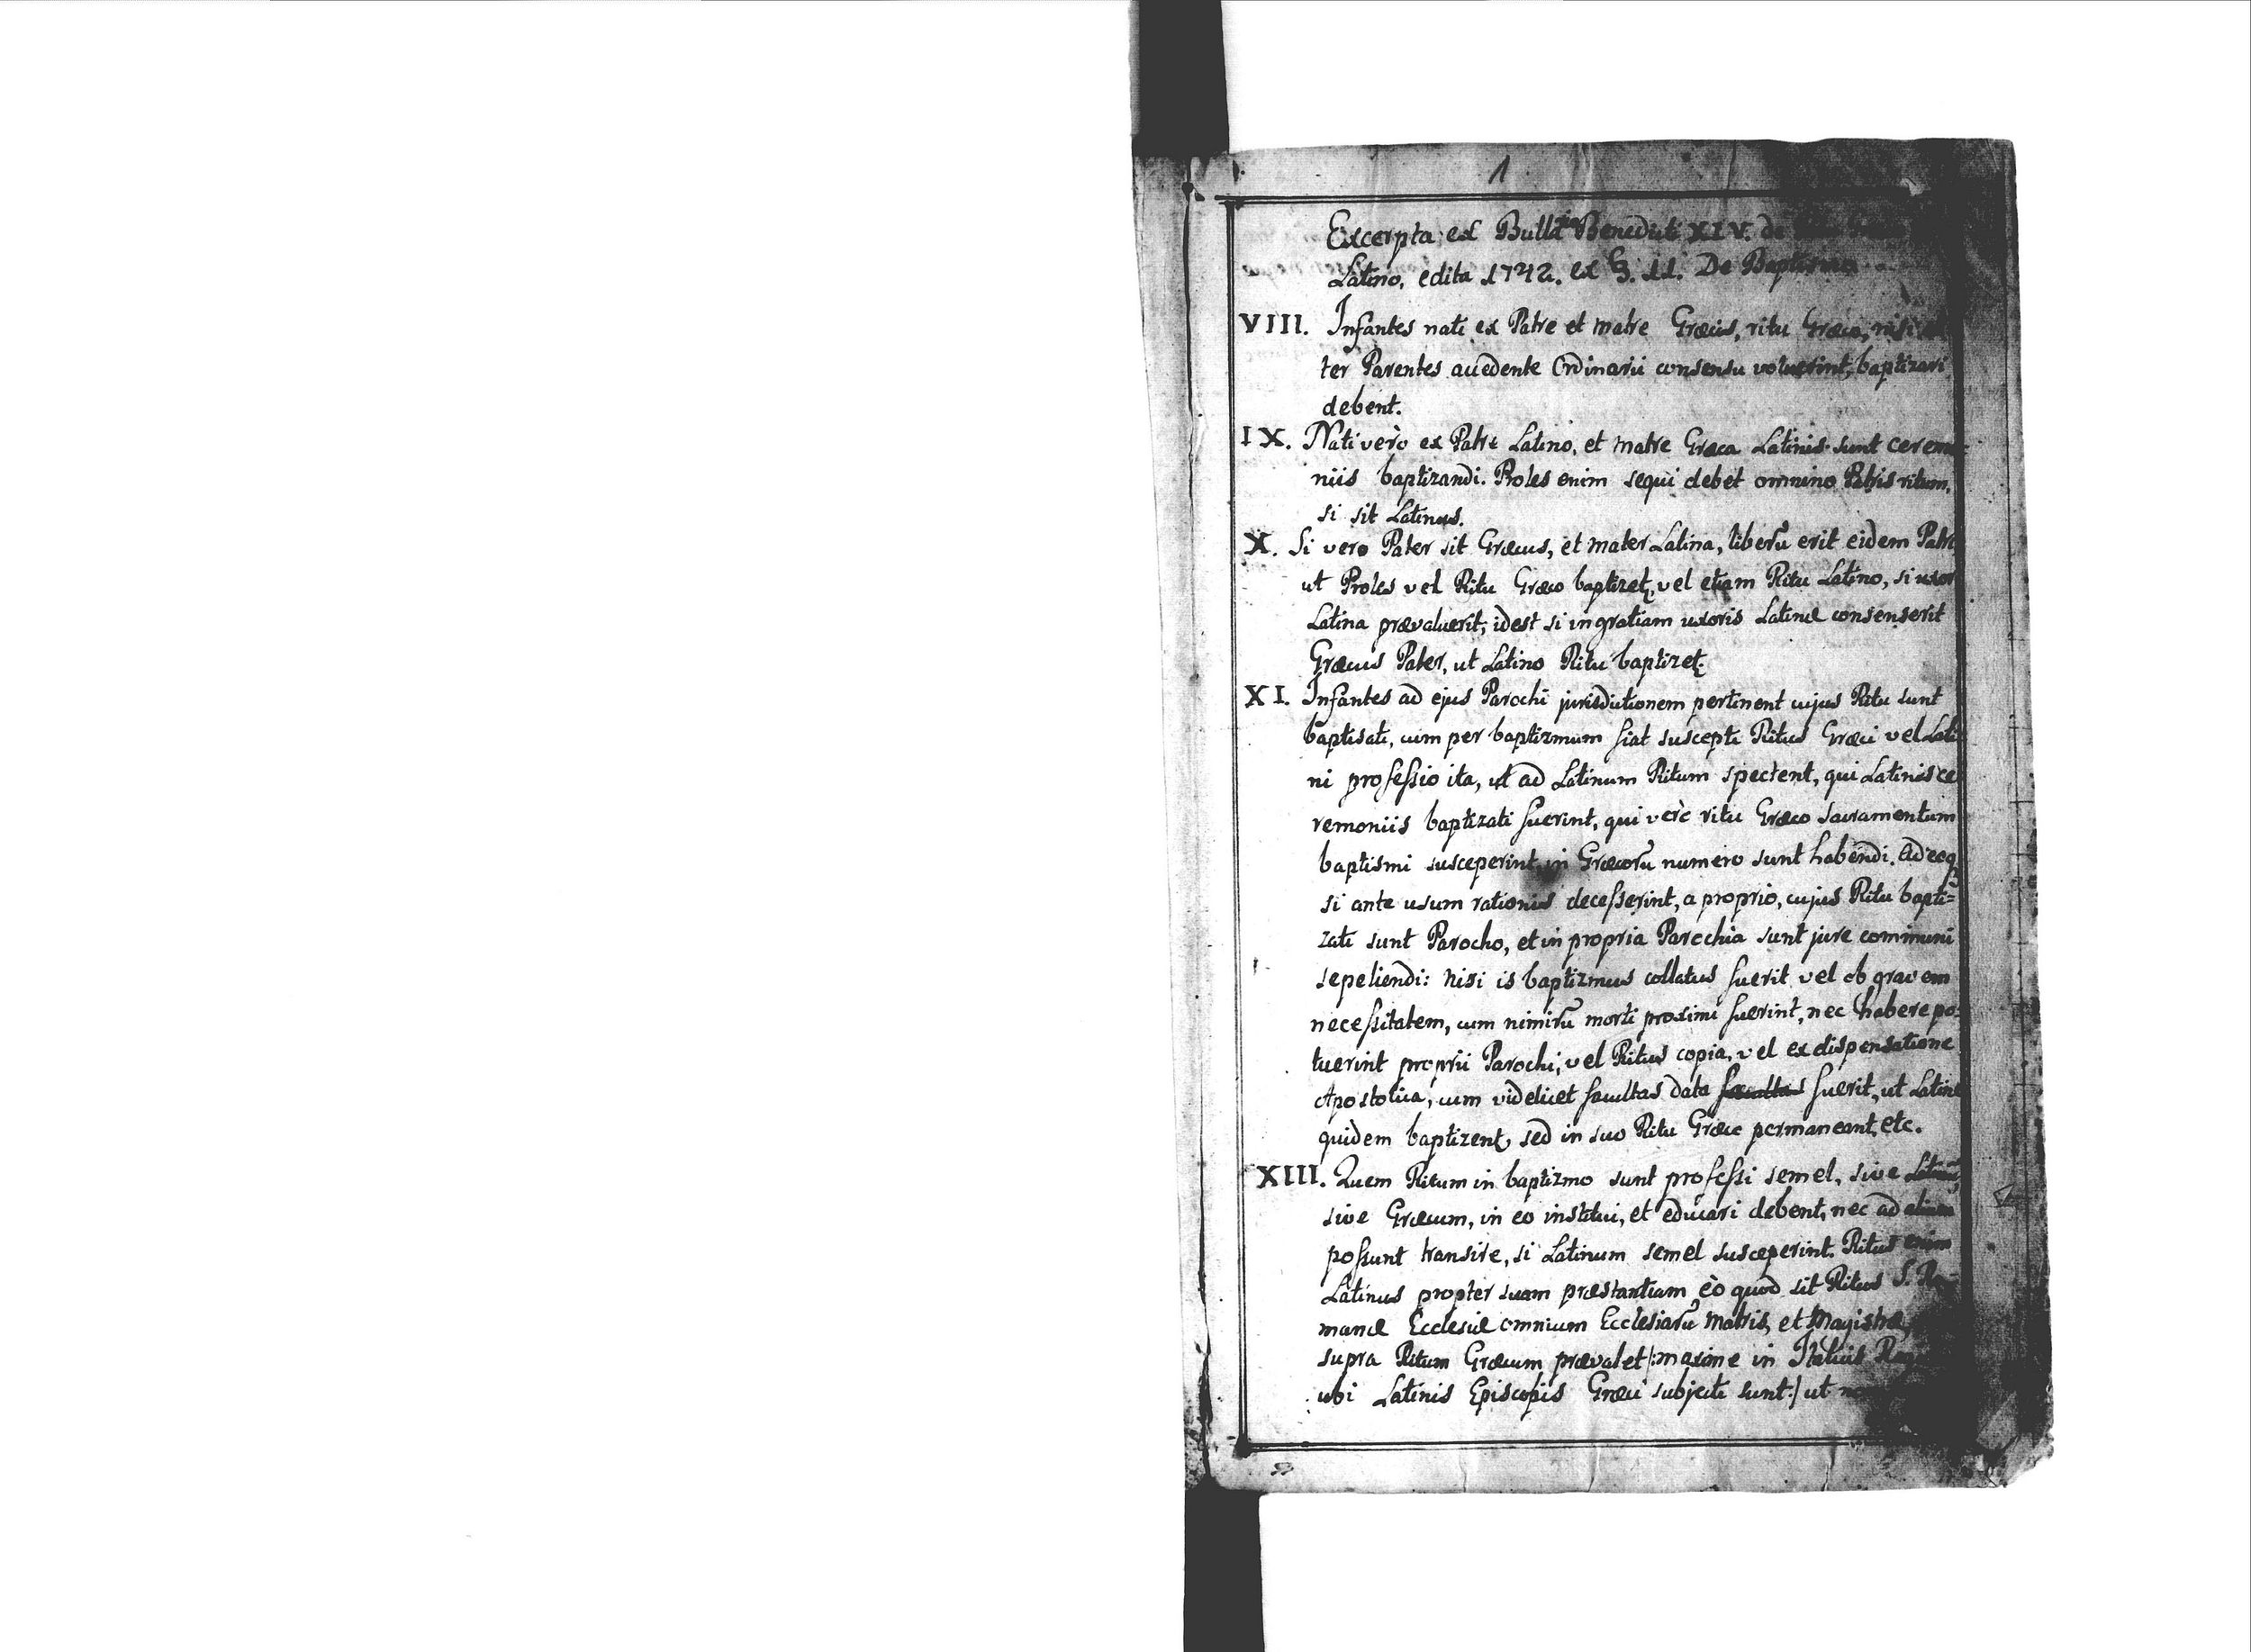 1
Excerpta ex Bulla Benedicti XIV. de
Latino, edita 1742. ex §. 11. De Baptismo
VIII. Infantes nati ex Patre et matre Græcis, ritu Græco, nisi
ter Parentes accedente Ordinarii consensu voluerint, baptizari
debent.
IX. Nati verò ex Patre Latino, et matre Græca Latinis sunt ceremo-
niis baptizandi. Proles enim sequi debet omnino Patris ritum,
si sit Latinus.
X. Si vero Pater sit Græcus, et mater Latina, liberũ erit eidem Patri
ut Proles vel Ritu Græco baptizet, vel etiam Ritu Latino, si uxor
Latina prævaluerit, idest si in gratiam uxoris Latinæ consenserit
Græcus Pater, ut Latino Ritu baptizet.
XI. Infantes ad ejus Parochi jurisdictionem pertinent cujus Ritu sunt
baptisati, cum per baptizmum fiat suscepti Ritus Græci vel Lati
ni professio ita, ut ad Latinum Ritum spectent, qui Latinis ce
remoniis baptizati fuerint, qui verò ritu Græco sacramentum
baptismi susceperint in Græcorũ numero sunt habendi. Adeoq
si ante usum rationis decesserint, a proprio, cujus Ritu bapti=
zati sunt Parocho, et in propria Parochia sunt jure communi
sepeliendi: nisi is baptizmus collatus fuerit vel ob gravem
necessitatem, cum nimirũ morti proximi fuerint, nec habere po=
tuerint proprii Parochi, vel Ritus copia, vel ex dispensatione
Apostolica, cum videlicet facultas data facultas fuerit, ut Latine
quidem baptizent, sed in suo Ritu Græco permaneant, etc.
XIII. Quem Ritum in baptizmo sunt professi semel, sive Latinum,
sive Græcum, in eo institui, et educari debent, nec ad alium
possunt transire, si Latinum semel susceperint. Ritus enim
Latinus propter suam præstantiam eò quod sit Ritus S. Ro-
manæ Ecclesiæ omnium Ecclesiarũ Matris, et Magistræ,
supra Ritum Græcum prævalet /:maxime in Italicis
ubi Latinis Episcopis Græci subjecti sunt:/ ut